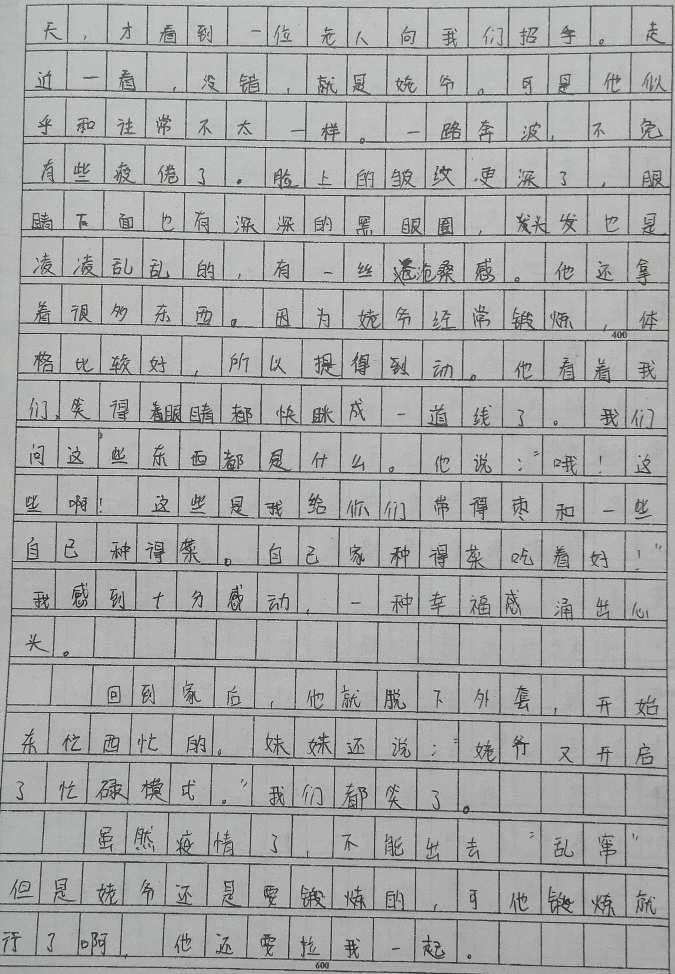 天，才看到一位老人向我们招手。走
近一看，没错，就是姥爷。可是他似
乎和往常不太一样。一路奔波，不免
有些疲倦了。脸上的皱纹更深了，眼
睛下面也有深深的黑眼圈，头发也是
凌凌乱乱的，有一丝沧桑感。他还拿
着很多东西。因为姥爷经常锻炼，体
400
格比较好，所以提得到动。他看着我
们，笑得眼睛都快眯成一道线了。我们
问这些东西都是什么。他说：“哦！这
些啊！这些是我给你们带得枣和一些
自己种得菜。自己家种得菜吃着好！”
我感到十分感动，一种幸福感涌出心
头。
回到家后，他就脱下外套，开始
东忙西忙的。妹妹还说：“姥爷又开启
了忙碌模式。”我们都笑了。
虽然疫情了，不能出去“乱窜”
但是姥爷还是要锻炼的，可他锻炼就
行了啊，他还要拉我一起。
600